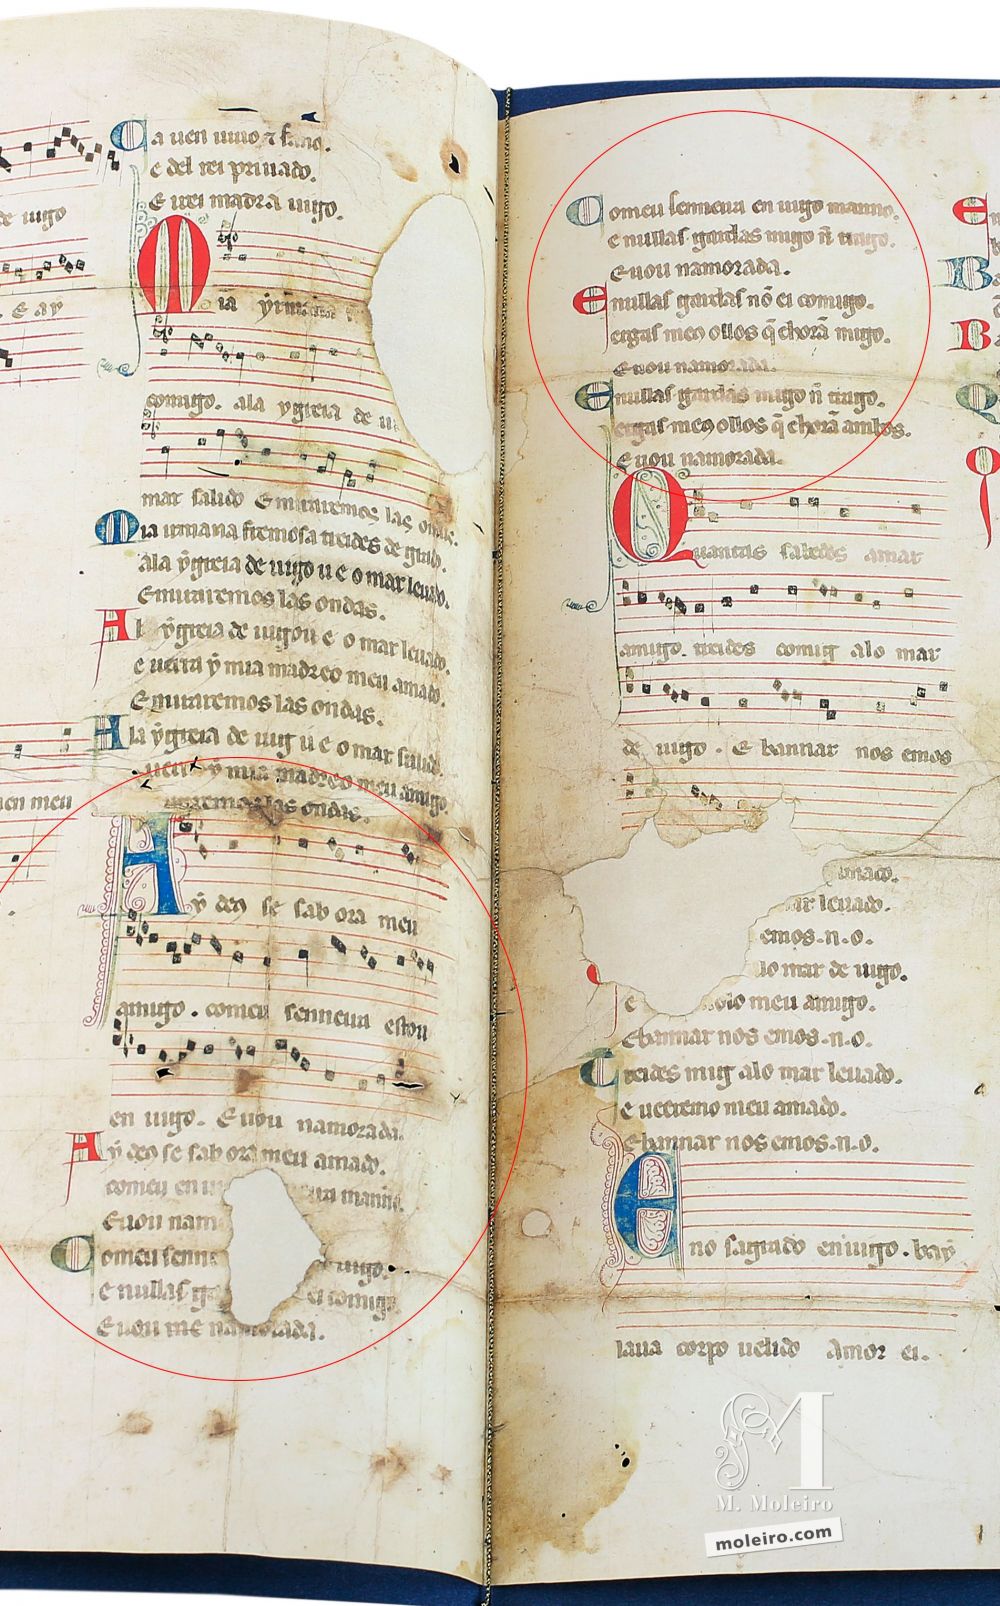 de uigo
. E ay
uen meu
Ca uen uiuo ⁊ sano.
e del rei priuado.
E irei madra uigo.
Mia yrmana
comigo. ala ygreia de
mar salido E miraremos las ondas.
Mia irmana fremosa treides de grado.
Ala ygreia de uigo u e o mar leuado.
E miraremos las ondas.
Al ygreia de uigo u e o mar leuado.
e uerra y mia madre o meu amado.
E miraremos las ondas.
Ala ygreia de uig u e o mar salido.
uerra y mia madre o meu amigo.
miraremos las ondas.
Ay deo se sab ora meu
amigo. comeu senneira estou
en uigo. E uou namorada.
Ay deo se sab ora meu amado.
comeu en
E uou nam
Comeu senne uigo.
e nullas g ei comigo
E uou me namorada.
Comeu senneira en uigo manno.
e nullas gardas migo ñ trago.
E uou namorada.
E nullas gardas nõ ei comigo.
ergas meo ollos q̃ chorã migo.
E uou namorada.
E nullas gardas migo ñ trago.
ergas meo ollos q̃ chorã ambos.
E uou namorada.
Quantas sabedes amar
amigo. treides comig alo mar
de uigo. E bannar nos emos
leuado.
emos.n.o.
lo mar de uigo.
e olo meu amigo.
E bannar nos emos.n.o.
Treides mig alo mar leuado.
e ueeremo meu amado.
E bannar nos emos.n.o.
Eno sagrado en uigo. bay
laua corpo uelido Amor ei.
M
M. Moleiro
moleiro.com